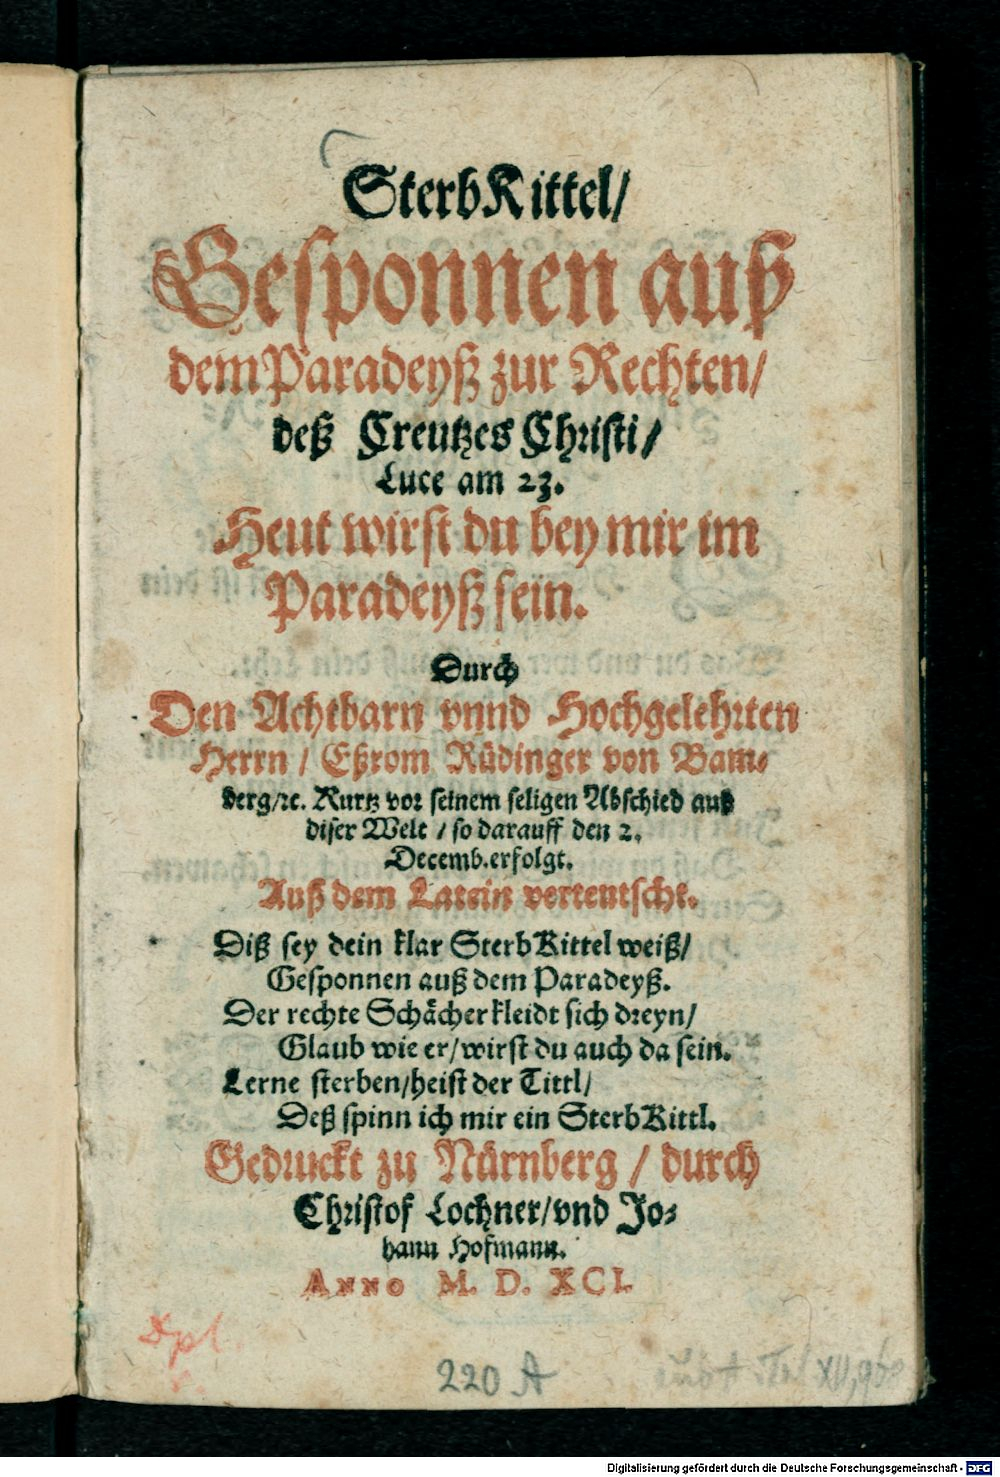 SterbKittel/
Gesponnen auß
dem Paradeyß zur Rechten/
deß Creutzes Christi/
Luce am 23.
Heut wirst du bey mir im
Paradeyß sein.
Durch
Den Achtbarn vnnd Hochgelehrten
Herrn / Eßrom Rüdinger von Bam-
berg/ꝛc. Kurtz vor seinem seligen Abschied auß
diser Welt / so darauff den 2.
Decemb. erfolgt.
Auß dem Latein verteutscht.
Diß sey dein klar SterbKittel weiß/
Gesponnen auß dem Paradeyß.
Der rechte Schächer kleidt sich dreyn/
Glaub wie er/wirst du auch da sein.
Lerne sterben/heist der Tittl/
Deß spinn ich mir ein SterbKittl.
Gedruckt zu Nürnberg / durch
Christof Lochner/vnd Jo-
hann Hofmann.
Anno M. D. XCI.
220 A
Digitalisierung gefördert durch die Deutsche Forschungsgemeinschaft - DFG